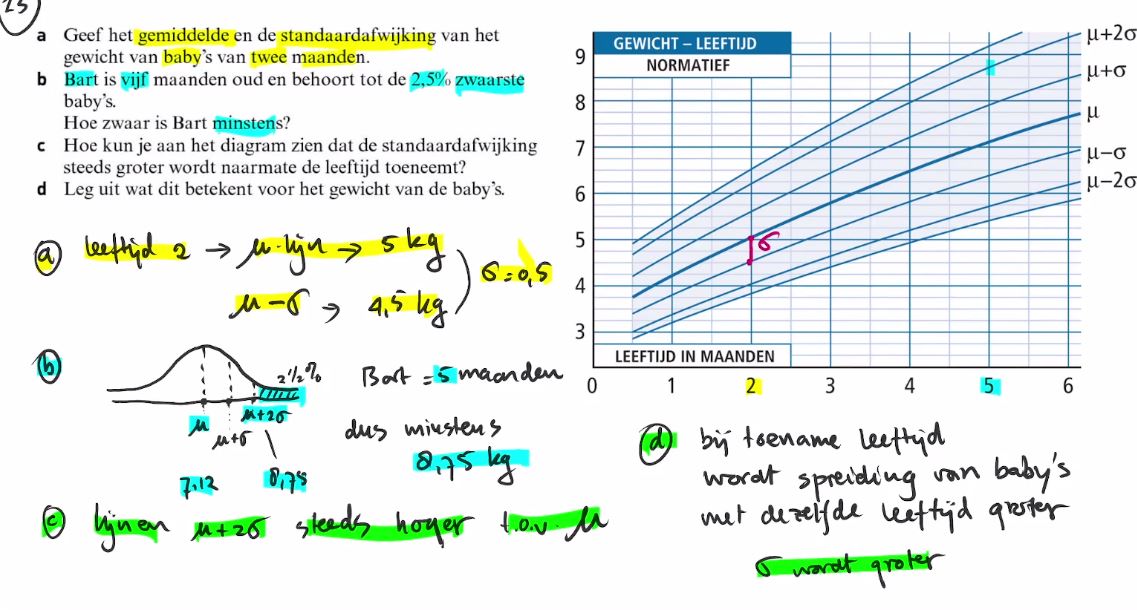 25
a Geef het gemiddelde en de standaardafwijking van het
gewicht van baby's van twee maanden.
b Bart is vijf maanden oud en behoort tot de 2,5% zwaarste
baby's.
Hoe zwaar is Bart minstens?
c Hoe kun je aan het diagram zien dat de standaardafwijking
steeds groter wordt naarmate de leeftijd toeneemt?
d Leg uit wat dit betekent voor het gewicht van de baby's.
GEWICHT – LEEFTIJD
NORMATIEF
9
8
7
6
5
4
3
μ+2σ
μ+σ
μ
μ−σ
μ−2σ
σ
LEEFTIJD IN MAANDEN
0 1 2 3 4 5 6
a leeftijd 2 → μ-lijn → 5 kg
μ−σ → 4,5 kg
σ=0,5
b
2½%
μ
μ+σ
μ+2σ
7,12
8,75
Bart = 5 maanden
dus minstens
8,75 kg
c lijnen μ+2σ steeds hoger t.o.v. μ
d bij toename leeftijd
wordt spreiding van baby's
met dezelfde leeftijd groter
σ wordt groter